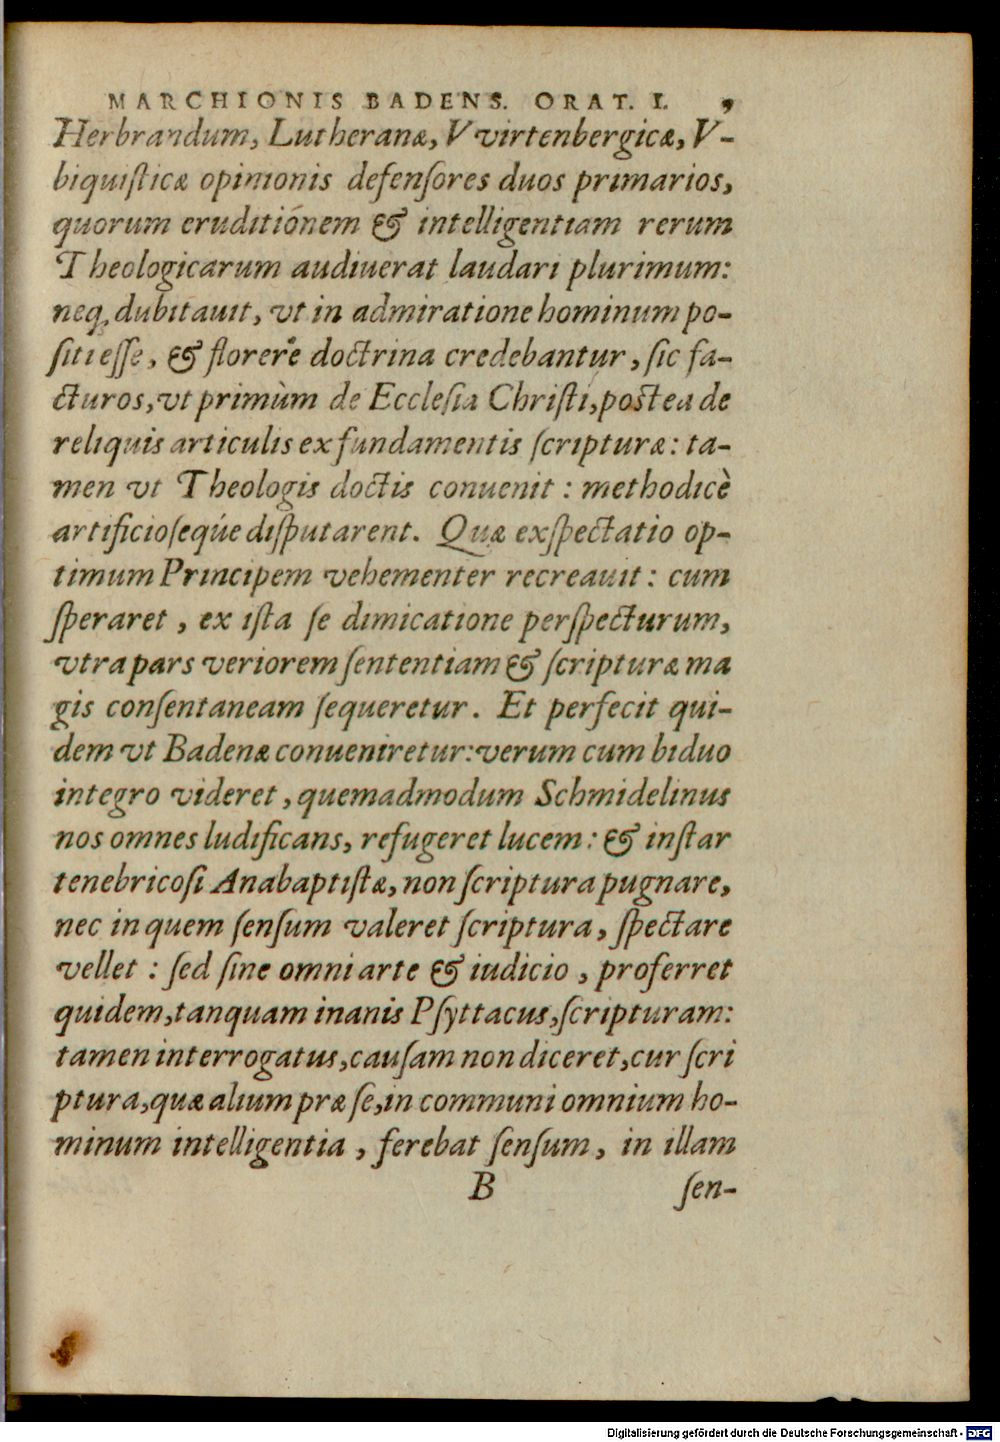 MARCHIONIS BADENS. ORAT. I. 9
Herbrandum, Lutheranæ, Vvirtenbergicæ, V-
biquiſticæ opinionis defenſores duos primarios,
quorum eruditiónem & intelligentiam rerum
Theologicarum audiuerat laudari plurimum:
neq; dubitauit, vt in admiratione hominum po-
ſiti eſſe, & florere doctrina credebantur, ſic fa-
cturos, vt primùm de Eccleſia Chriſti, postea de
reliquis articulis ex fundamentis ſcripturæ: ta-
men vt Theologis doctis conuenit: methodicè
artificioſeqúe diſputarent. Quæ exſpectatio op-
timum Principem vehementer recreauit: cum
ſperaret, ex iſta ſe dimicatione perſpecturum,
vtra pars veriorem ſententiam & ſcripturæ ma
gis conſentaneam ſequeretur. Et perfecit qui-
dem vt Badenæ conueniretur: verum cum biduo
integro videret, quemadmodum Schmidelinus
nos omnes ludificans, refugeret lucem: & inſtar
tenebricoſi Anabaptiſtæ, non ſcriptura pugnare,
nec in quem ſenſum valeret ſcriptura, ſpectare
vellet: ſed ſine omni arte & iudicio, proferret
quidem, tanquam inanis Pſyttacus, ſcripturam:
tamen interrogatus, cauſam non diceret, cur ſcri
ptura, quæ alium præ ſe, in communi omnium ho-
minum intelligentia, ferebat ſenſum, in illam
B ſen-
Digitalisierung gefördert durch die Deutsche Forschungsgemeinschaft - DFG